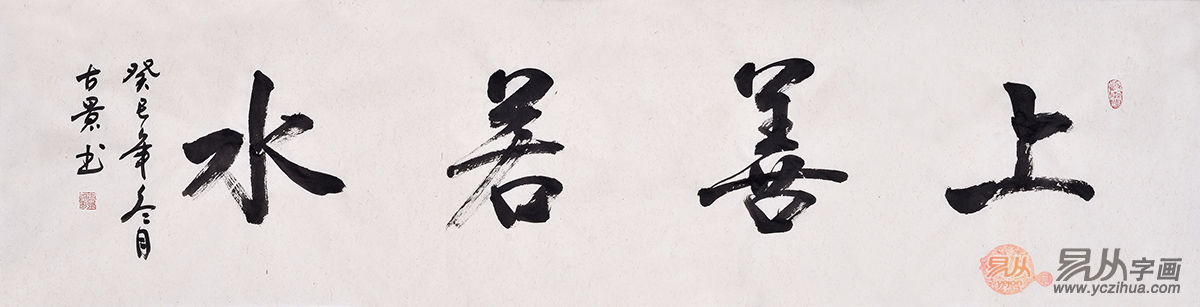 上善若水
癸巳年冬月
古景书
易从
yejon
易从字画
www.yczihua.com